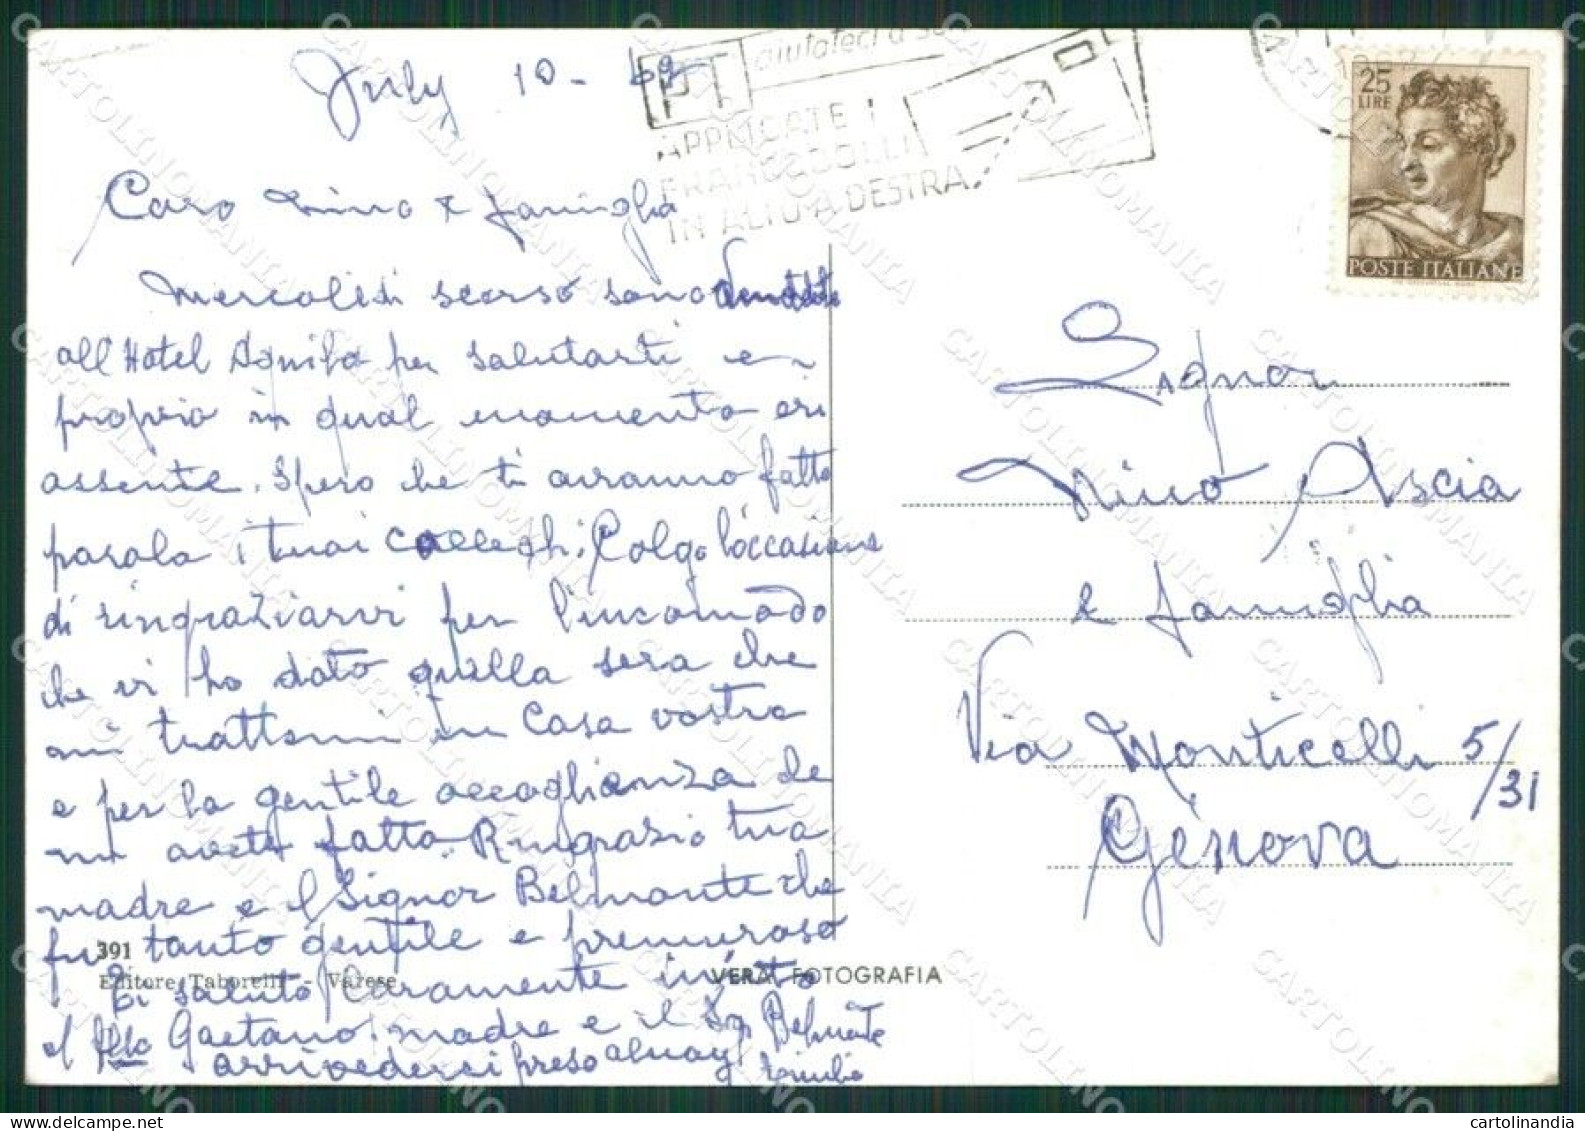 July 10-69
PT aiutateci a
APPLICATE I
FRANCOBOLLI
IN ALTO A DESTRA
25
LIRE
POSTE ITALIANE
Caro Nino & famiglia
Mercoledi scorso sono
all'Hotel per salutarti e
proprio in qual momento eri
assente. Spero che ti avranno fatto
parola i tuoi colleghi. Colgo l'occasione
di ringraziarvi per l'incomodo
che vi ho dato quella sera che
mi trattenni in Casa vostra
e per la gentile accoglienza che
mi avete fatto. Ringrazio tua
madre e il Signor Belmonte che
fu tanto gentile e premuroso
Ti saluto Caramente
Gaetano. madre e il Sig Belmonte
arrivederci preso
Signor
Nino Ascia
& famiglia
Via Monticelli 5/31
Genova
391
Editore Taborelli - Varese
VERA FOTOGRAFIA
CARTOLINOMANIA
cartolinandia